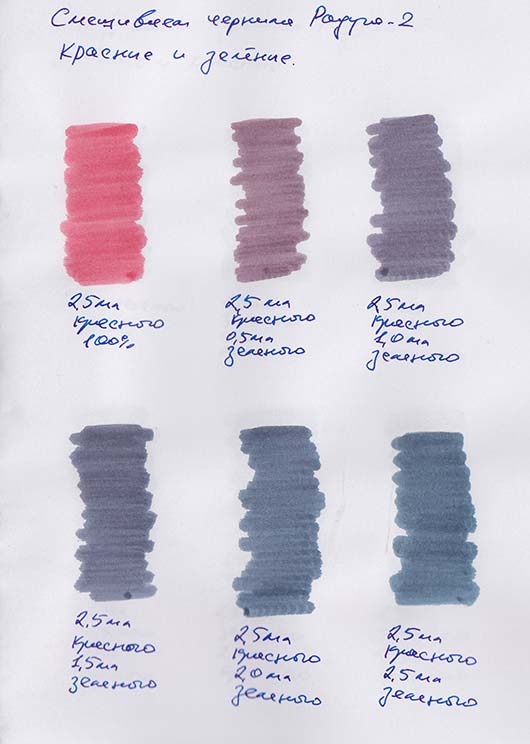 Смешиваем чернила Радуга-2
Красные и зелёные.
2,5 мл
красного
100%
2,5 мл
красного
0,5 мл
зеленого
2,5 мл
красного
1,0 мл
зеленого
2,5 мл
красного
1,5 мл
зеленого
2,5 мл
красного
2,0 мл
зеленого
2,5 мл
красного
2,5 мл
зеленого